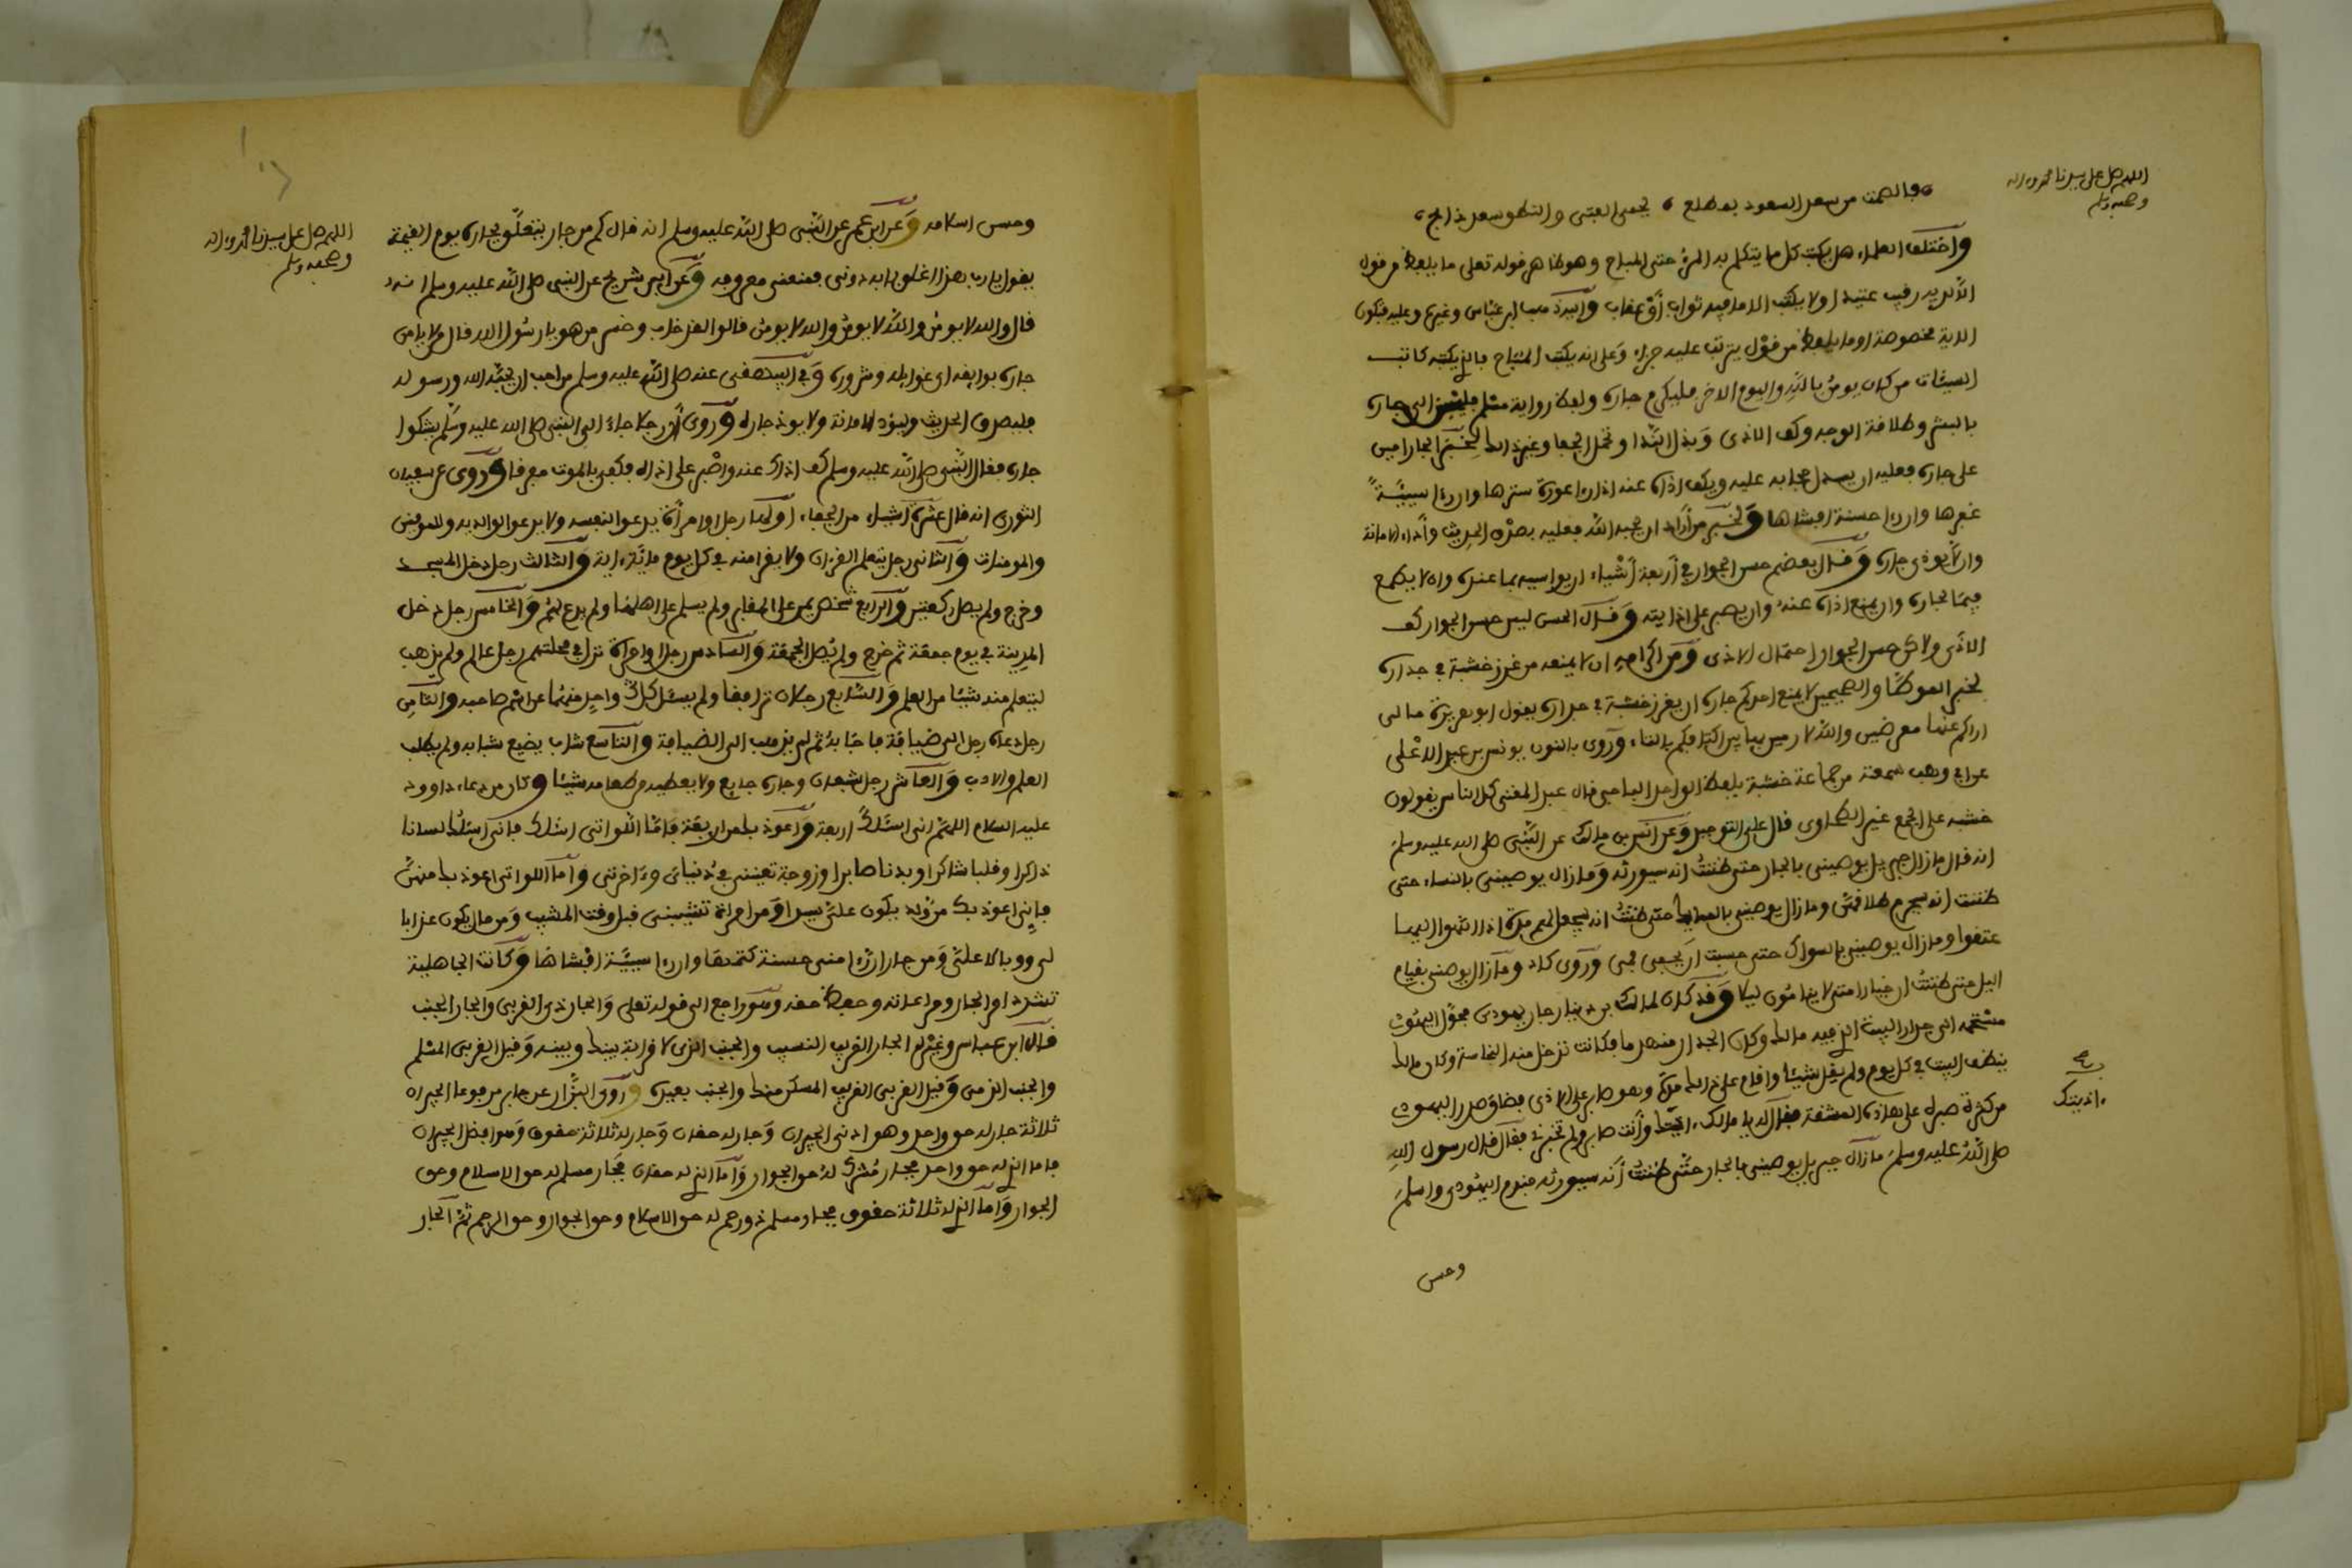 اللهم صل على سيدنا محمد وءاله
وصحبه وسلم
فبالصمت من سعد السعود بمطلع يحمى الفتى والنطق سعد ذابح
واختلف العلماء هل يكتب كل ما يتكلم به المرء حتى المباح وهو ظاهر قوله تعلى ما يلفظ من قول
الا لديه رقيب عتيد او لا يكتب الا ما فيه ثواب أو عقاب واليه ذهب ابن عباس وغيره وعليه فتكون
الاية مخصوصة او ما يلفظ من قول يترتب عليه جزاء وعلى انه يكتب المباح فالذ يكتبه كاتب
السيئات من كان يومن بالله واليوم الاخر فليكرم جاره ولفظ رواية مسلم فليحسن الى جاره
بالبشر وطلاقة الوجه وكف الاذى وبذل الندا وتحمل الجفا وغير ذلك لخبر الجار امين
على جاره فعليه ان يسدل حجابه عليه ويكف اذاه عنه اذا رءا عورة سترها وان رءا سيئة
غفرها وان رءا حسنة افشاها ولخبر من أراد ان يحبه الله فعليه بصدق الحديث وأداء الامانة
وان لا يوذى جاره وقال بعضهم حسن الجوار في أربعة أشياء ان يواسيه بما عنده وان لا يطمع
فيما لجاره وان يمنع اذاه عنه وان يصبر على اذايته وقال الحسن ليس حسن الجوار كف
الاذى ولاكن حسن الجوار احتمال الاذى ومن اكرامه ان لا يمنعه من غرز خشبة في جداره
لخبر الموطا والصحيحين لا يمنع احدكم جاره ان يغرز خشبة في جداره يقول ابو هريرة مالى
اراكم عنها معرضين والله لا رمين بها بين اكتافكم بالتاء وروى بالنون يونس بن عبد الاعلى
عن ابن وهب سمعته من جماعة خشبة بلفظ الواحد الباجى قال عبد الغنى كل الناس يقولون
خشبه على الجمع غير الطحاوى قال على التوحيد وعن انس بن مالك عن النبى صلى الله عليه وسلم
انه قال ما زال جبريل يوصينى بالجار حتى ظننت انه سيورثه وما زال يوصينى بالنساء حتى
ظننت انه سيحرم طلاقهن وما زال يوصينى بالمماليك حتى ظننت انه يجعل لهم مدة اذا انتهوا اليها
عتقوا وما زال يوصينى بالسواك حتى حسبت ان يحفى فمى وروى كاد وما زال يوصنى بقيام
اليل حتى ظننت ان خيار امتى لا ينامون ليلا وقد كان لمالك بن دينار جار يهودى فحول اليهودى
مستحمه الى جدار البيت الذ فيه مالك وكان الجدار منهدما فكانت تدخل منه النجاسة وكان مالك
ينظف البيت في كل يوم ولم يقل شيئا واقام على ذلك مدة وهو صابر على الاذى فضاق صدر اليهودى
من كثرة صبره على هاذه المشقة فقال له يا مالك اذيتك وأنت صابر ولم تخبرنى فقال قال رسول الله
صلى الله عليه وسلم ما زال جبريل يوصينى بالجار حتى ظننت أنه سيورثه فندم اليهودى واسلم
ءاذيتك
وحسن
اللهم صل على سيدنا محمد وءاله
وصحبه وسلم
وحسن اسلامه وعن ابن عمر عن النبى صلى الله عليه وسلم انه قال كم من جار يتعلق بجاره يوم القيمة
يقول يا رب هذا اغلق بابه دونى فمنعنى معروفه وعن ابى شريح عن النبى صلى الله عليه وسلم انه
قال والله لا يومن والله لا يومن والله لا يومن قالوا لقد خاب وخسر من هو يا رسول الله قال من لا يامن
جاره بوايقه اى غوايله وشروره وفي البيهقى عنه صلى الله عليه وسلم من احب ان يحبه الله ورسوله
فليصدق الحديث وليؤد الامانة ولا يوذ جاره وروى أن رجلا جاء الى النبى صلى الله عليه وسلم يشكوا
جاره فقال النبى صلى الله عليه وسلم كف اذاك عنه واصبر على اذاه فكفى بالموت مفرقا وروى عن سفيان
الثورى انه قال عشرة اشياء من الجفاء اولها رجل او امرأة يدعوا لنفسه ولا يدعوا لوالديه وللمومنين
والمومنات والثانى رجل يتعلم القرءان ولا يقرا منه في كل يوم مائة ءاية والثالث رجل دخل المسجد
وخرج ولم يصل ركعتين والرابع شخص يمر على المقابر ولم يسلم على اهلها ولم يدع لهم والخامس رجل دخل
المدينة في يوم جمعة ثم خرج ولم يصل الجمعة والسادس رجل او امرأة نزل في محلتهم رجل عالم ولم يذهب
ليتعلم منه شيئا من العلم والسابع رجلان ترافقا ولم يسئل كل واحد منهما عن اسم صاحبه والثامن
رجل دعاه رجل الى ضيافة فاجابه ثم لم يذهب الى الضيافة والتاسع شاب يضيع شبابه ولم يطلب
العلم والادب والعاشر رجل شبعان وجاره جايع ولا يعطيه من طعامه شيئا وكان من دعاء داوود
عليه السلام اللهم انى اسئلك اربعة واعوذ بك من اربعة فاما اللواتى اسئلك فانى اسئلك لسانا
ذاكرا وقلبا شاكرا وبدنا صابرا وزوجة تعيننى في دنياى وءاخرتى وأما اللواتى اعوذ بك منهن
فإنى اعوذ بك من ولد يكون على سيدا ومن امرأة تشيبنى قبل وقت المشيب ومن مال يكون عذابا
لى ووبالا على ومن جار ان رءا منى حسنة كتمها وان رءا سيئة افشاها وكانت الجاهلية
تشدد امر الجار ومراعاته وحفظ حقه وهو راجع الى قوله تعلى والجار ذى القربى والجار الجنب
قال ابن عباس وغيره الجار القريب النسيب والجنب الذى لا قرابة بينك وبينه وقيل القربى المسلم
والجنب الذمى وقيل القربى القريب المسكن منك والجنب بعيده وروى البزار عن جابر مرفوعا الجيران
ثلاثة جار له حق واحد وهو ادنى الجيران وجار له حقان وجار له ثلاثة حقوق وهو افضل الجيران
فاما الذ له حق واحد فجار مشرك له حق الجوار وأما الذ له حقان فجار مسلم له حق الاسلام وحق
الجوار وأما الذ له ثلاثة حقوق فجار مسلم ذو رحم له حق الاسلام وحق الجوار وحق الرحم ثم الجار